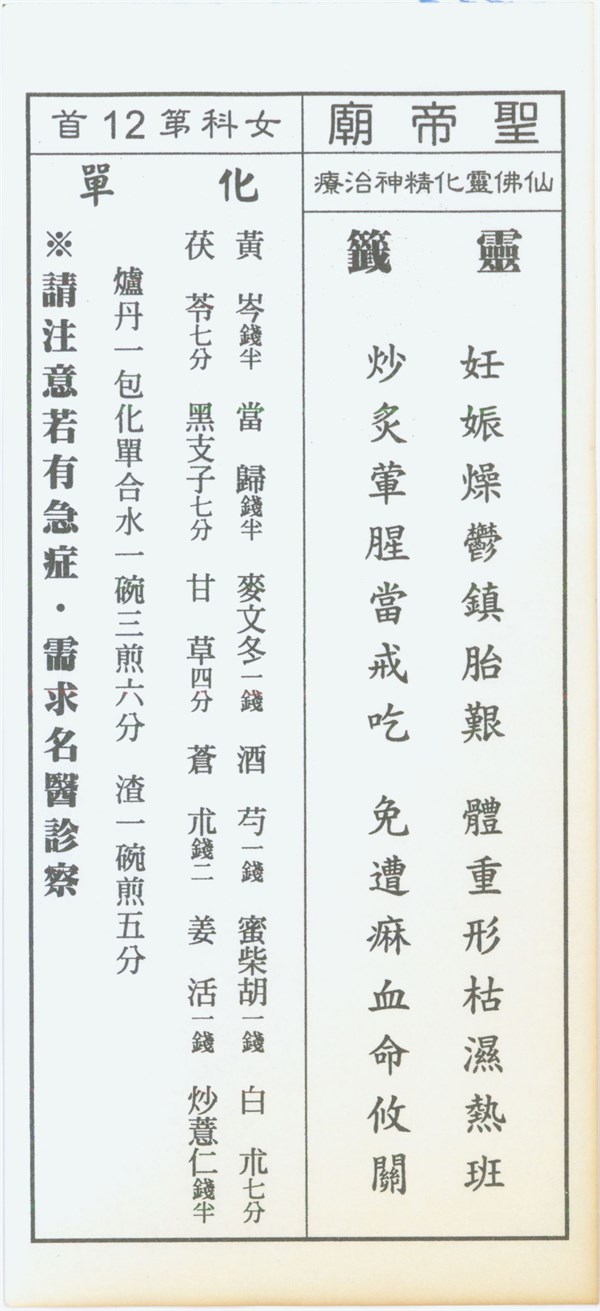 聖帝廟
仙佛靈化精神治療
靈籤
妊娠燥鬱鎮胎艱 體重形枯濕熱班
炒炙葷腥當戒吃 免遭痳血命攸關
女科第12首
化單
黃岑錢半 當歸錢半 麥文冬一錢 酒芍一錢 蜜柴胡一錢 白朮七分
茯苓七分 黑支子七分 甘草四分 蒼朮錢二 姜活一錢 炒薏仁錢半
爐丹一包化單合水一碗三煎六分 渣一碗煎五分
※請注意若有急症・需求名醫診察